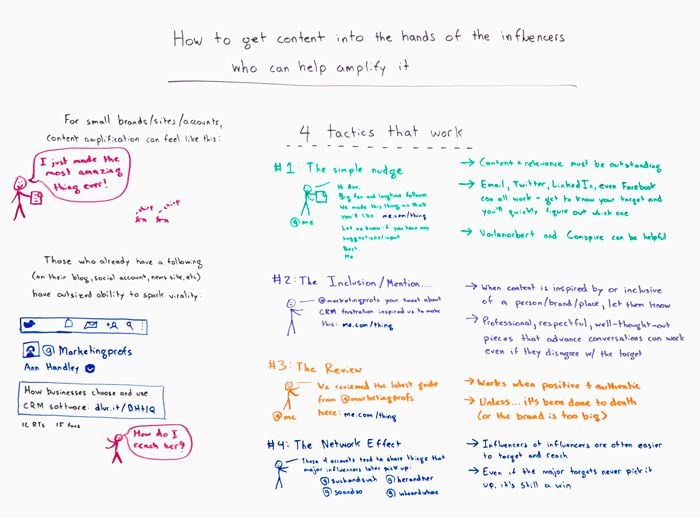 How to get content into the hands of the influencers
who can help amplify it
For small brands/sites/accounts,
content amplification can feel like this:
I just made the
most amazing
thing ever!
chirp
chirp
Those who already have a following
(on their blog, social account, news site, etc)
have outsized ability to spark virality:
@Marketingprofs
Ann Handley
How businesses choose and use
CRM software: dlvr.it/BH4JQ
12 RTs 15 favs
How do I
reach her?
4 tactics that work
#1: The simple nudge
Hi Ann,
Big fan and longtime follower.
We made this thing we think
you'll like me.com/thing
Let us know if you have any
suggestions/input
Best
Me
@me
→ Content + relevence must be outstanding
→ Email, Twitter, LinkedIn, even Facebook
can all work - get to know your target and
you'll quickly figure out which one
→ Voilanorbert and Conspire can be helpful
#2: The Inclusion/Mention....
@marketingprofs your tweet about
CRM frustration inspired us to make
this: me.com/thing
→ When content is inspired by or inclusive
of a person/brand/place, let them know
→ Professional, respectful, well-thought-out
pieces that advance conversations can work
even if they disagree w/ the target
#3: The Review
We reviewed the latest guide
from @marketingprofs
here: me.com/thing
@me
→ Works when positive + authentic
→ Unless... it's been done to death
(or the brand is too big)
#4: The Network Effect
These 4 accounts tend to share things that
major influencers later pick up:
@suchandsuch @herandher
@soandso @whoandwhere
→ Influencers of influencers are often easier
to target and reach
→ Even if the major targets never pick it
up, it's still a win